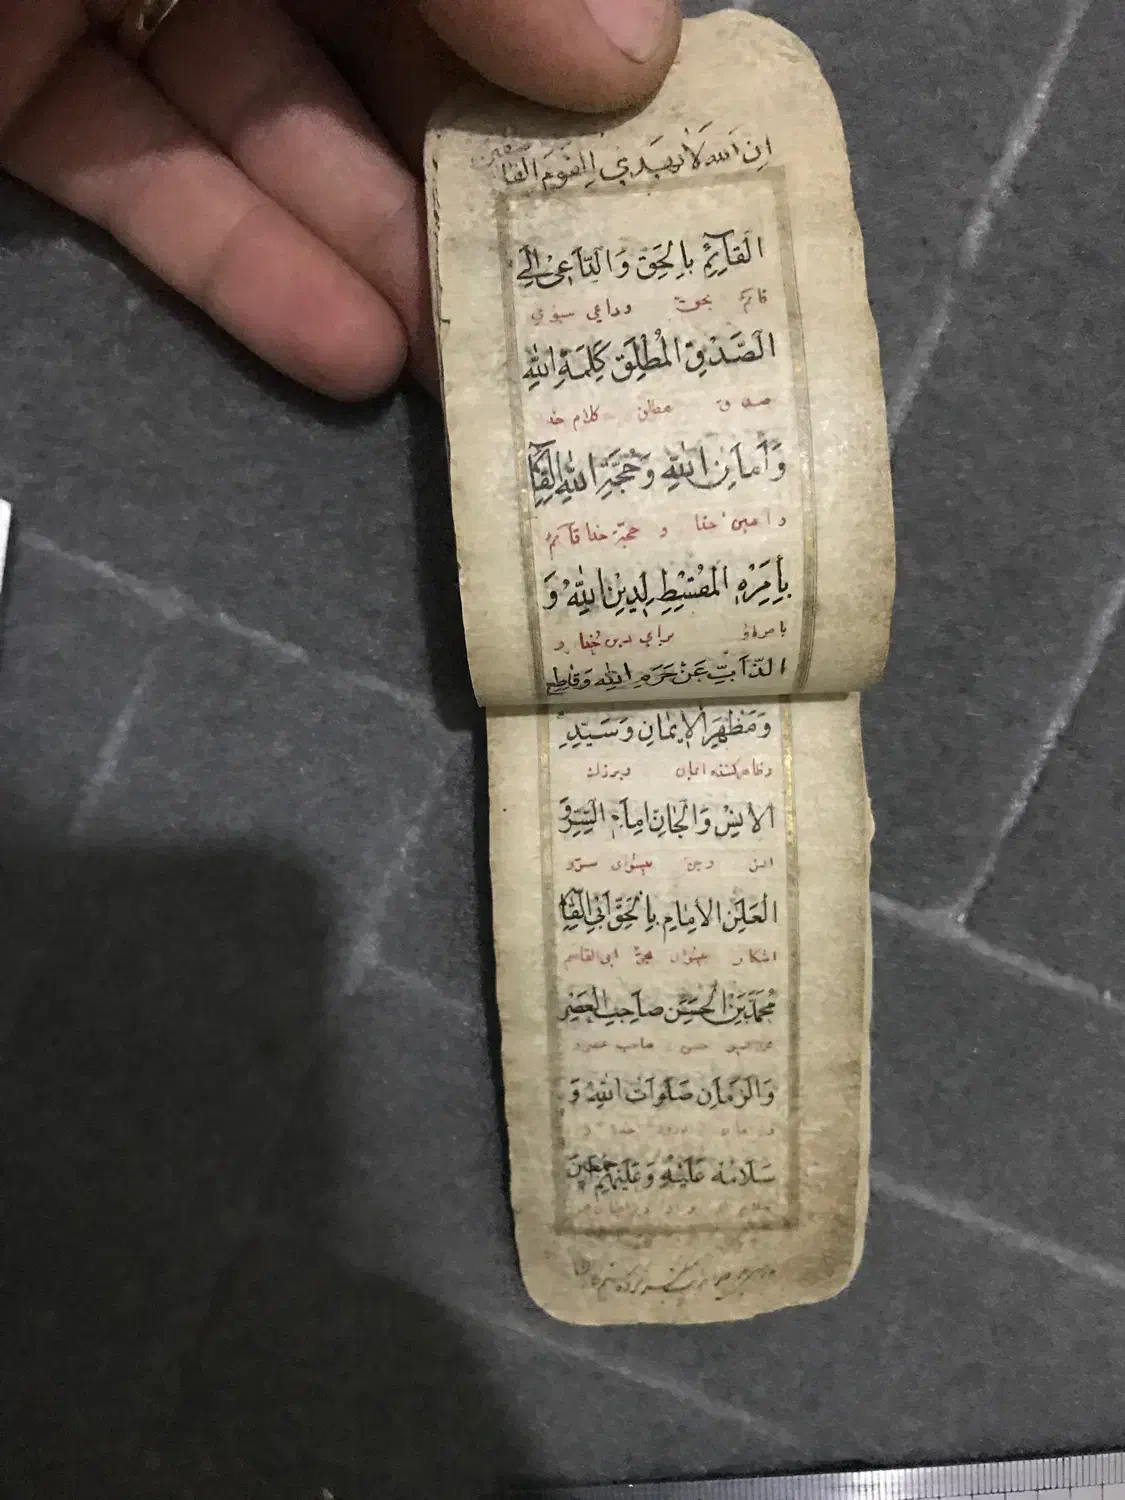 ان الله لا یهدي القوم الفاسقین
القآئِمُ بِالحَقِّ وَ الدّٰاعِیْ اِلَی
قائم بحق وداعي سوي
الصِّدْقِ المُطْلَقِ كَلِمَةِ اللهِ
صدق مطلق كلام خدا
وَاَمانِ اللهِ وَحُجَّةِ اللهِ القآ
و امین خدا و حجة خدا قائم
بِاَمْرِهِ المُقْسِطِ لِدِیْنِ اللهِ وَ
بامر او براي دین خدا و
الذّٰآبِّ عَنْ حَرَمِ اللهِ وَ قاطِع
وَمَظْهَرِ الْاِیْمانِ وَ سَیِّدِ
وظاهر كننده ایمان و بزرك
الاِنْسِ وَ الْجانِّ اِمامِ السِّرِّ وَ
انس وجن پیشوای سر و
العَلَنِ الاِمامِ بِالْحَقِّ اَبِي القآ
اشكار پیشوای بحق ابی القاسم
مُحَمَّدِ بْنِ الْحَسَنِ صاحِبِ الْعَصْرِ
حسن صاحب عصر و
وَ الزَّمانِ صَلَواتُ اللهِ وَ
سَلامُهُ عَلَیْهِ وَ عَلَیْهِمْ اجمعین